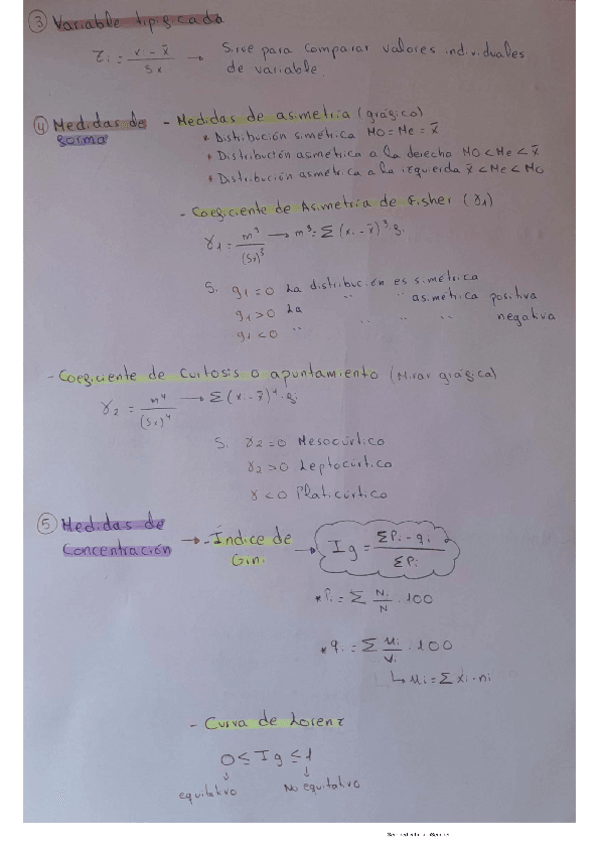 ③ Variable tipificada
Zi = xi - x̄ / Sx → Sirve para comparar valores individuales
de variable.
④ Medidas de forma - Medidas de asimetría (gráfico)
* Distribución simétrica Mo = Me = x̄
* Distribución asimétrica a la derecha Mo < Me < x̄
* Distribución asimétrica a la izquierda x̄ < Me < Mo
- Coeficiente de Asimetría de Fisher (γ1)
γ1 = m³ / (Sx)³ → m³ = Σ (xi - x̄)³ · fi
Si g1 = 0 La distribución es simétrica
g1 > 0 La " " asimétrica positiva
g1 < 0 " " " " negativa
- Coeficiente de Curtosis o apuntamiento (Mirar gráfica)
γ2 = m⁴ / (Sx)⁴ → Σ (xi - x̄)⁴ · fi
Si γ2 = 0 Mesocúrtico
γ2 > 0 Leptocúrtico
γ < 0 Platicúrtico
⑤ Medidas de Concentración → - Índice de Gini → Ig = ΣPi - qi / ΣPi
* Pi = Σ Ni / N · 100
* qi = Σ ui / Vi · 100
↳ ui = Σ xi · ni
- Curva de Lorenz
0 ≤ Ig ≤ 1
equitativo No equitativo